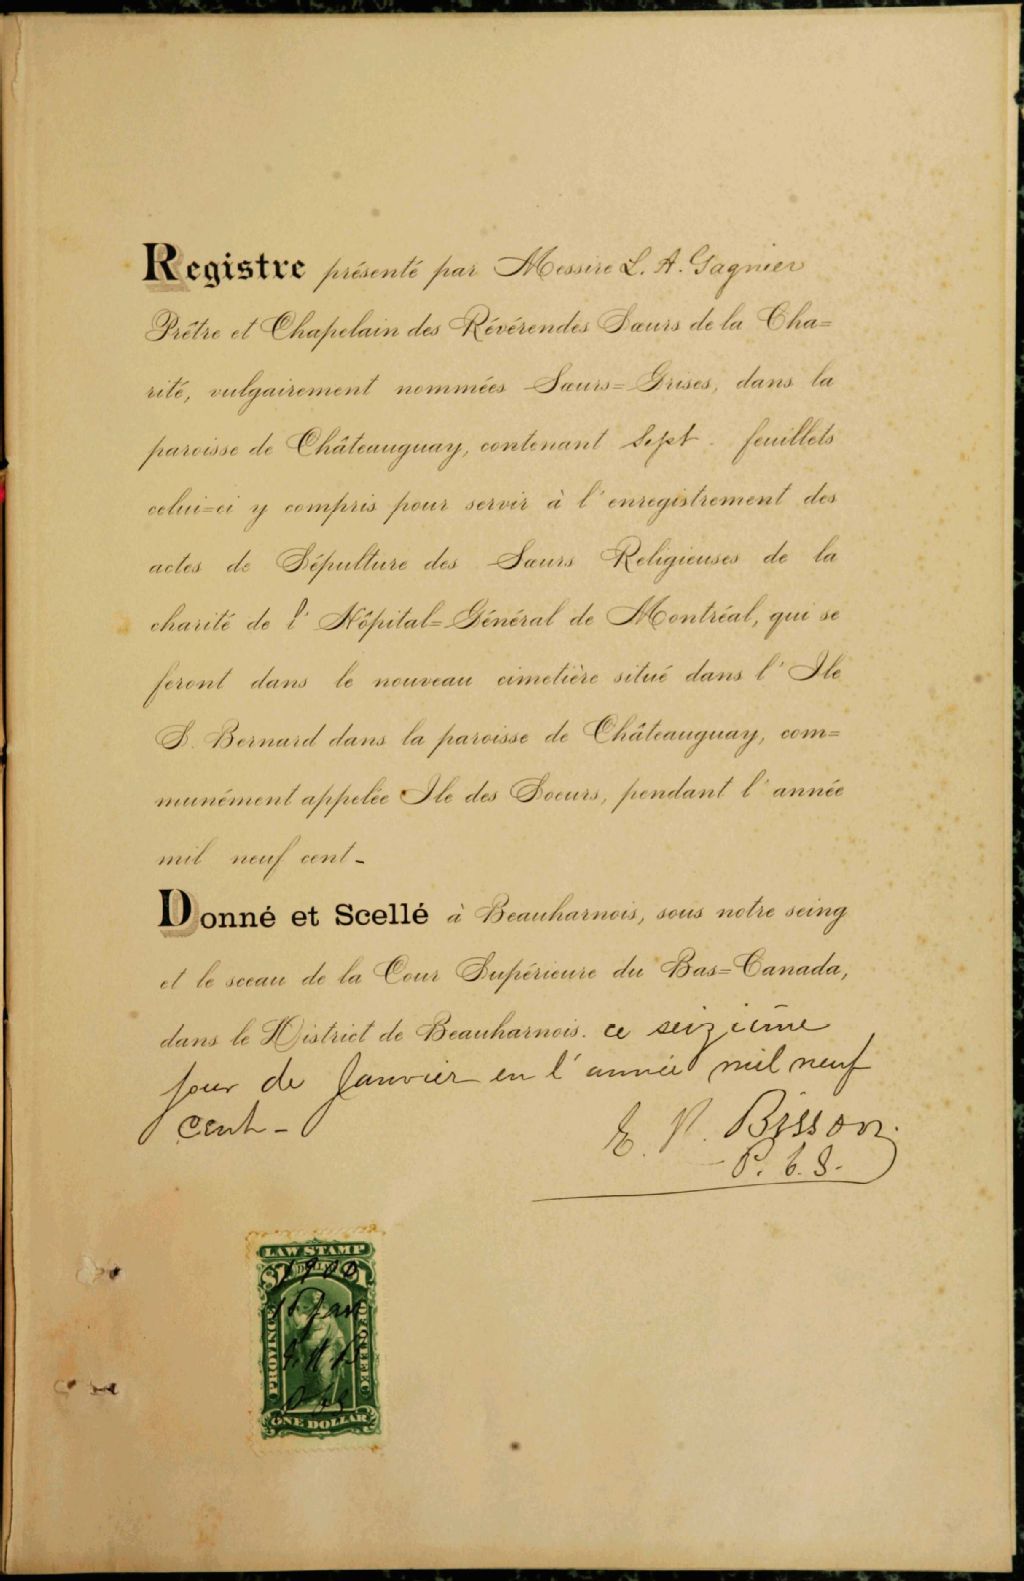 Registre présenté par Messire L. A. Gagnier
Prêtre et Chapelain des Révérendes Sœurs de la Cha=
rité, vulgairement nommées Sœurs=Grises, dans la
paroisse de Châteauguay, contenant Sept feuillets
celui=ci y compris pour servir à l'enregistrement des
actes de Sépulture des Sœurs Religieuses de la
charité de l'Hôpital=Général de Montréal, qui se
feront dans le nouveau cimetière situé dans l'Ile
S. Bernard dans la paroisse de Châteauguay, com=
munément appelée Ile des Soeurs, pendant l'année
mil neuf cent -
Donné et Scellé à Beauharnois, sous notre seing
et le sceau de la Cour Supérieure du Bas=Canada,
dans le District de Beauharnois. ce seizième
jour de Janvier en l'année mil neuf
cent -
E. N. Bisson.
P. C. S.
LAW STAMP
1900
Jan
PROVINCE
QUEBEC
ONE DOLLAR